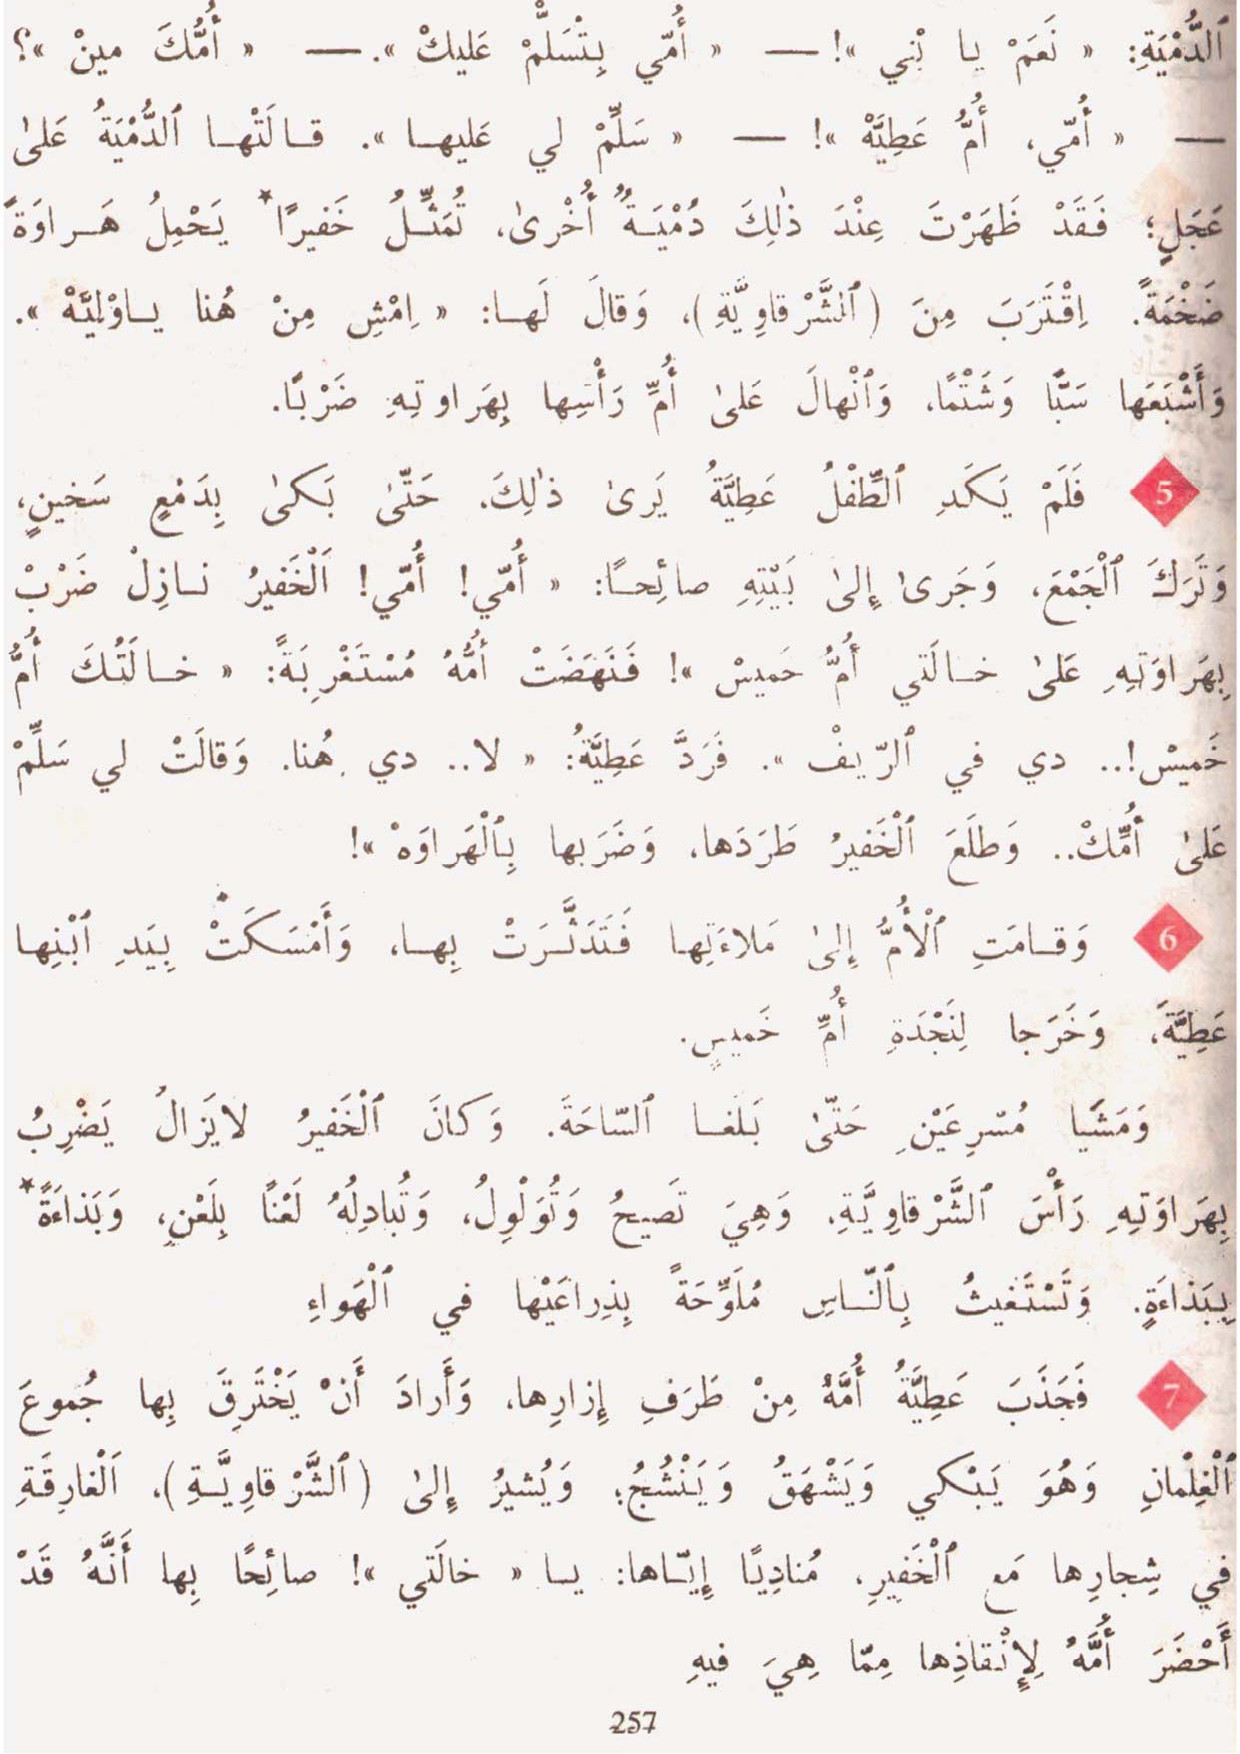 ٱلدُّمْيَةِ: « نَعَمْ يا بْني »! — « أُمّي بِتْسَلَّمْ عَليكْ ». — « أُمُّكَ مينْ »؟
— « أُمّي، أُمُّ عَطِيَّهْ »! — « سَلِّمْ لي عَليها ». قالَتْها ٱلدُّمْيَةُ عَلىٰ
عَجَلٍ؛ فَقَدْ ظَهَرْتَ عِنْدَ ذٰلِكَ دُمْيَةٌ أُخْرىٰ، تُمَثِّلُ خَفيرًا* يَحْمِلُ هَراوَةً
ضَخْمَةً. اِقْتَرَبَ مِنَ (ٱلشَّرْقاوِيَّةِ)، وَقالَ لَها: « اِمْشِ مِنْ هُنا ياوْلِيَّهْ ».
وَأَشْبَعَها سَبًّا وَشَتْمًا، وَٱنْهالَ عَلىٰ أُمِّ رَأْسِها بِهَراوتِهِ ضَرْبًا.
5 فَلَمْ يَكَدِ ٱلطِّفْلُ عَطِيَّةُ يَرىٰ ذٰلِكَ. حَتّىٰ بَكىٰ بِدَمْعٍ سَخينٍ،
وَتَرَكَ ٱلْجَمْعَ، وَجَرىٰ إِلىٰ بَيْتِهِ صائِحًا: « أُمّي! أُمّي! اَلْخَفيرُ نازِلْ ضَرْبْ
بِهَراوَتِهِ عَلىٰ خالَتي أُمُّ خَميسْ »! فَنَهَضَتْ أُمُّهُ مُسْتَغْرِبَةً: « خالَتُكَ أُمُّ
خَميسْ!.. دي في ٱلرّيفْ ». فَرَدَّ عَطِيَّةُ: « لا.. دي هُنا. وَقالَتْ لي سَلِّمْ
عَلىٰ أُمِّكْ.. وَطلَعَ ٱلْخَفيرُ طَرَدَها، وَضَرَبها بِٱلْهَراوَهْ »!
6 وَقامَتِ ٱلْأُمُّ إِلىٰ مَلاءَتِها فَتَدَثَّرَتْ بِها، وَأَمْسَكَتْ بِيَدِ ٱبْنِها
عَطِيَّةَ، وَخَرَجا لِنَجْدَةِ أُمِّ خَميسٍ.
وَمَشَيا مُسْرِعَيْنِ حَتّىٰ بَلغا ٱلسّاحَةَ. وَكانَ ٱلْخَفيرُ لايَزالُ يَضْرِبُ
بِهَراوَتِهِ رَأْسَ ٱلشَّرْقاوِيَّةِ، وَهِيَ تَصيحُ وَتُوَلْوِلُ، وَتُبادِلُهُ لَعْنًا بِلَعْنٍ، وَبَذاءَةً*
بِبَذاءَةٍ. وَتَسْتَغيثُ بِٱلنّاسِ مُلَوِّحَةً بِذِراعَيْها في ٱلْهَواءِ
7 فَجَذَبَ عَطِيَّةُ أُمَّهُ مِنْ طَرَفِ إِزارِها، وَأَرادَ أَنْ يَخْتَرِقَ بِها جُموعَ
ٱلْغِلْمانِ وَهُوَ يَبْكي وَيَشْهَقُ وَيَنْشُجُ؛ وَيُشيرُ إِلىٰ (ٱلشَّرْقاوِيَّةِ)، اَلْغارِقَةِ
في شِجارِها مَع ٱلْخَفيرِ، مُنادِيًا إِيّاها: يا « خالَتي »! صائِحًا بِها أَنَّهُ قَدْ
أَحْضَرَ أُمَّهُ لِإِنْقاذِها مِمّا هِيَ فيهِ
257